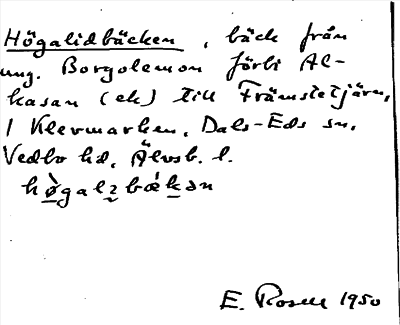 Högalidbäcken, bäck från
ung. Borgolemon förbi Al-
kasan (ek) till Främstetjärn,
i Klevmarken, Dals-Eds sn,
Vedbo hd, Älvsb. l.
hø̀galɀbǽkən
E. Rosell 1950